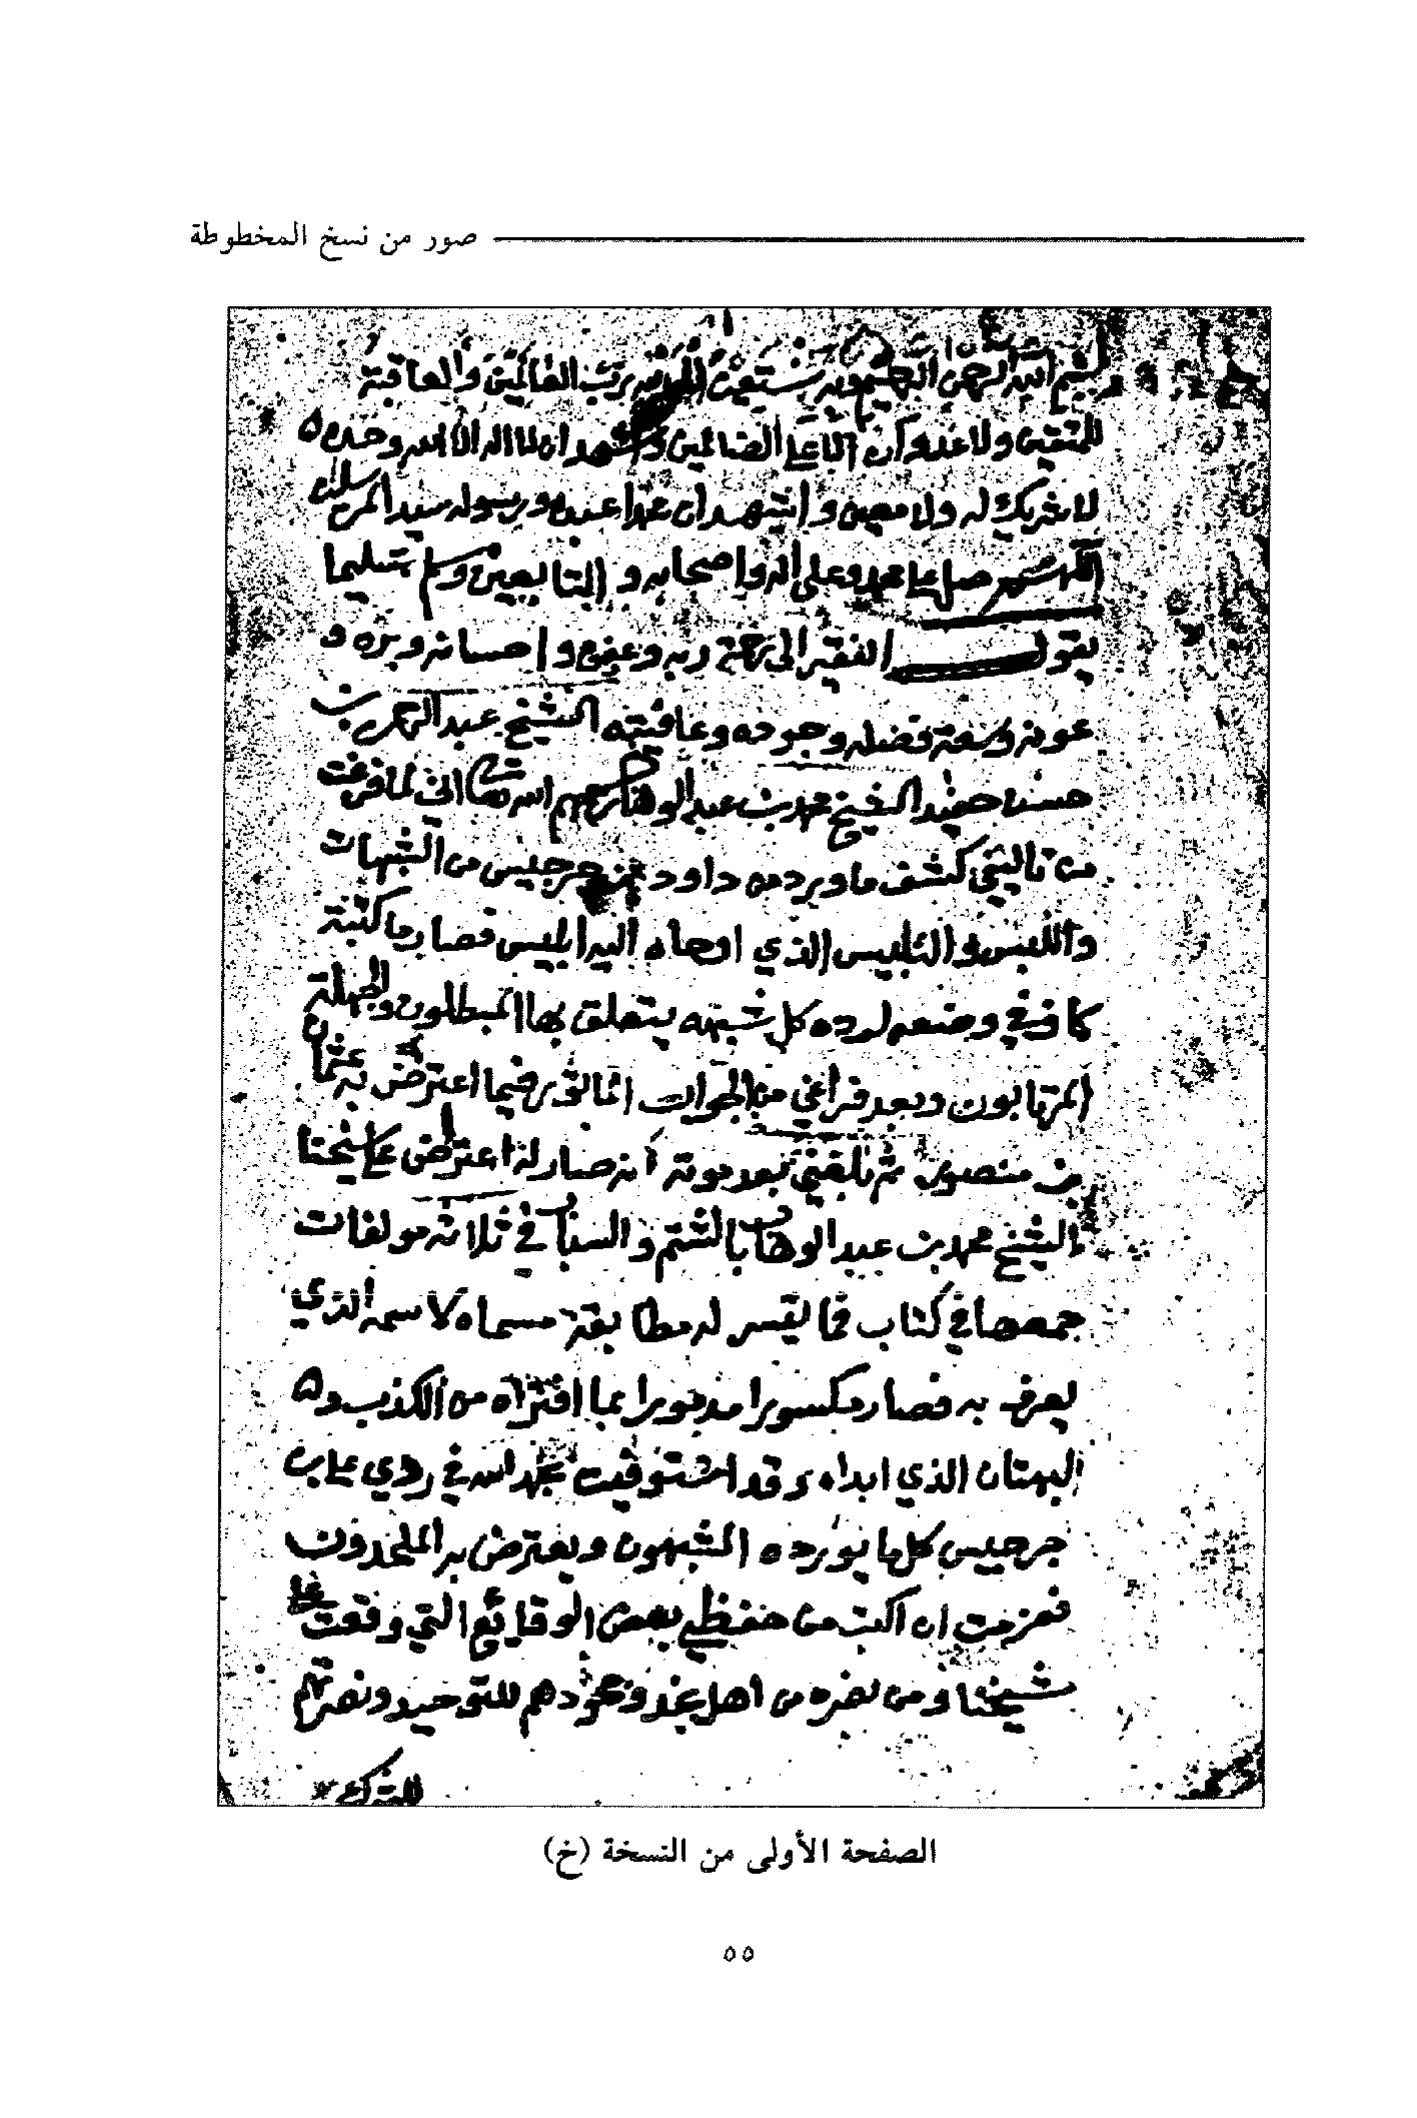 صور من نسخ المخطوطة
بسم الله الرحمن الرحيم وبه نستعين الحمد لله رب العالمين والعاقبة
للمتقين ولا عدوان الا على الضالمين واشهد ان لا اله الا الله وحده
لا شريك له ولا معين واشهد ان محمدا عبده ورسوله سيد المرسلين
اللهم صل على محمد وعلى اله واصحابه والتابعين وسلم تسليما
يقول الفقير الى رحمة ربه وعفوه واحسانه وبره و
عونه وسعة فضله وجوده وعافيته الشيخ عبد الرحمن بن
حسن حفيد الشيخ محمد بن عبد الوهاب رحمهم الله تعالى اني لما فرغت
من تاليفي كشف ما ورده داود بن جرجيس من الشبهات
واللبس والتلبيس الذي اوحاه اليه ابليس فصار ما كتبته
كاف في وضعه لرده كل شبهه يتعلق بها المبطلون والجهلة
المرتابون وبعد فراغي من الجواب الماثور فيما اعترض به عثمان
بن منصور ثم بلغني بعد موته أنه صار له اعتراض على شيخنا
الشيخ محمد بن عبد الوهاب بالشتم والسباب في ثلاثة مولفات
جمعها في كتاب فما تيسر له مطابقة مسماه لاسمه الذي
يعرف به فصار مكسورا مدحورا بما افتراه من الكذب و
البهتان الذي ابداه وقد استوفيت بحمد الله في ردي على بن
جرجيس كلما يورده المشبهون ويعترض به الملحدون
فعزمت ان اكتب من حفظي بعض الوقائع التي وقعت على
شيخنا ومن نصره من اهل نجد وجحودهم للتوحيد ونصرتهم
للشرك
الصفحة الأولى من النسخة (خ)
٥٥